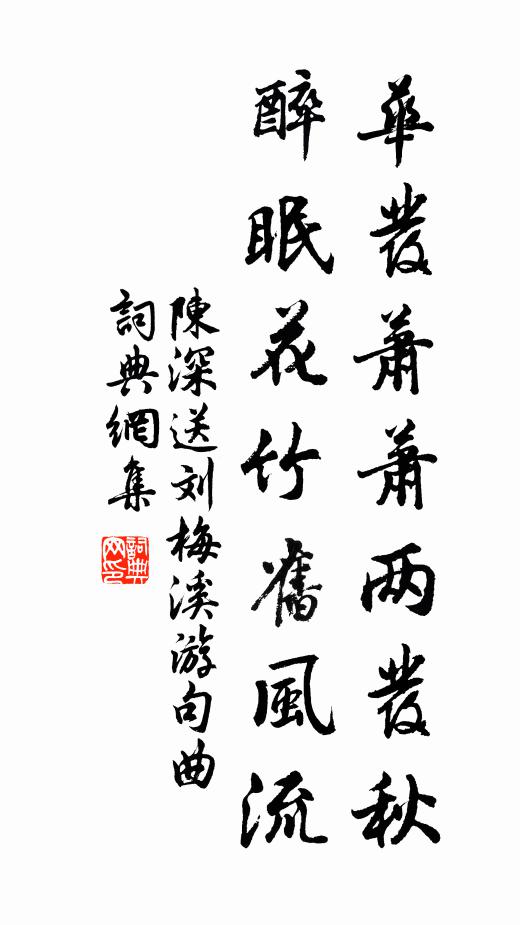 華發蕭蕭两發秋
醉眠花竹舊風流
陳深送刘梅溪游句曲
詞典網集
詞典网印